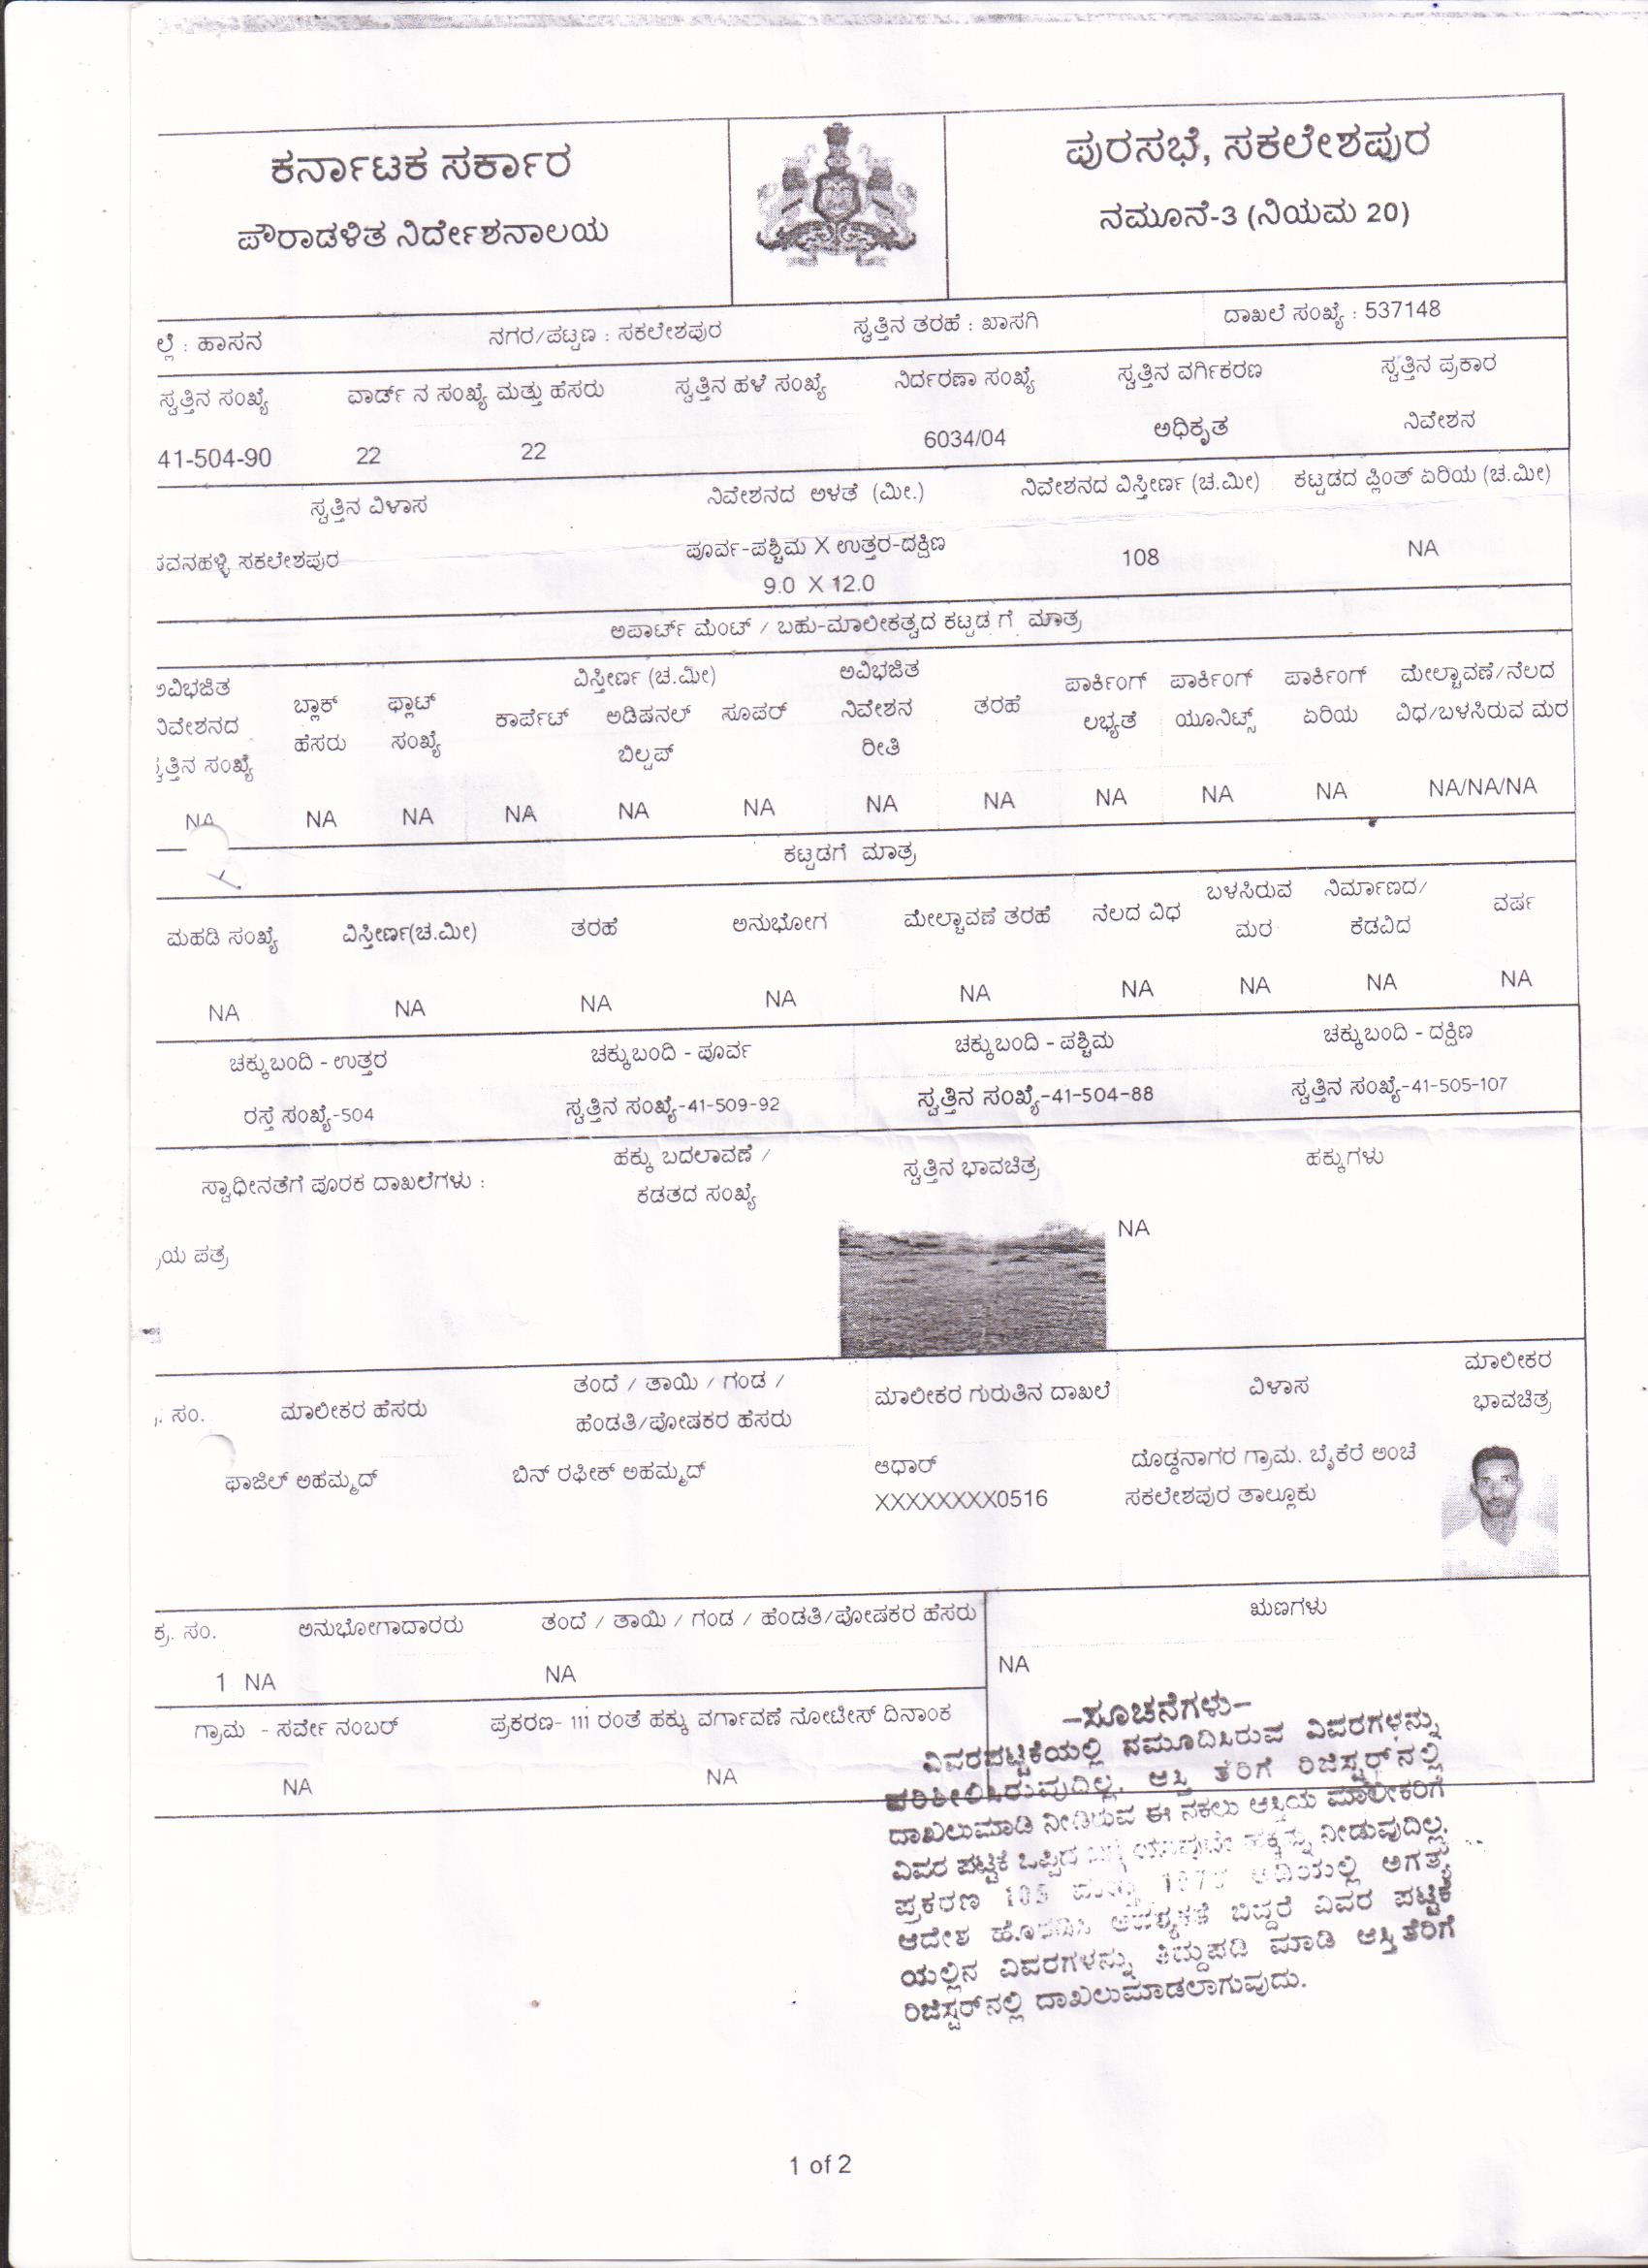 ಕರ್ನಾಟಕ ಸರ್ಕಾರ
ಪೌರಾಡಳಿತ ನಿರ್ದೇಶನಾಲಯ
ಪುರಸಭೆ, ಸಕಲೇಶಪುರ
ನಮೂನೆ-3 (ನಿಯಮ 20)
ಲ್ಲೆ : ಹಾಸನ ನಗರ/ಪಟ್ಟಣ : ಸಕಲೇಶಪುರ ಸ್ವತ್ತಿನ ತರಹೆ : ಖಾಸಗಿ ದಾಖಲೆ ಸಂಖ್ಯೆ : 537148
ಸ್ವತ್ತಿನ ಸಂಖ್ಯೆ ವಾರ್ಡ್ ನ ಸಂಖ್ಯೆ ಮತ್ತು ಹೆಸರು ಸ್ವತ್ತಿನ ಹಳೆ ಸಂಖ್ಯೆ ನಿರ್ದರಣಾ ಸಂಖ್ಯೆ ಸ್ವತ್ತಿನ ವರ್ಗಿಕರಣ ಸ್ವತ್ತಿನ ಪ್ರಕಾರ
41-504-90 22 22 6034/04 ಅಧಿಕೃತ ನಿವೇಶನ
ಸ್ವತ್ತಿನ ವಿಳಾಸ ನಿವೇಶನದ ಅಳತೆ (ಮೀ.) ನಿವೇಶನದ ವಿಸ್ತೀರ್ಣ (ಚ.ಮೀ) ಕಟ್ಟಡದ ಪ್ಲಿಂತ್ ಏರಿಯ (ಚ.ಮೀ)
ವನಹಳ್ಳಿ ಸಕಲೇಶಪುರ ಪೂರ್ವ-ಪಶ್ಚಿಮ X ಉತ್ತರ-ದಕ್ಷಿಣ 108 NA
9.0 X 12.0
ಅಪಾರ್ಟ್ ಮೆಂಟ್ / ಬಹು-ಮಾಲೀಕತ್ವದ ಕಟ್ಟಡ ಗೆ ಮಾತ್ರ
ಅವಿಭಜಿತ ವಿಸ್ತೀರ್ಣ (ಚ.ಮೀ) ಅವಿಭಜಿತ ಪಾರ್ಕಿಂಗ್ ಪಾರ್ಕಿಂಗ್ ಪಾರ್ಕಿಂಗ್ ಮೇಲ್ಚಾವಣೆ/ನೆಲದ
ನಿವೇಶನದ ಬ್ಲಾಕ್ ಫ್ಲಾಟ್ ಕಾರ್ಪೆಟ್ ಅಡಿಷನಲ್ ಸೂಪರ್ ನಿವೇಶನ ತರಹೆ ಲಭ್ಯತೆ ಯೂನಿಟ್ಸ್ ಏರಿಯ ವಿಧ/ಬಳಸಿರುವ ಮರ
ಸ್ವತ್ತಿನ ಸಂಖ್ಯೆ ಹೆಸರು ಸಂಖ್ಯೆ ಬಿಲ್ಟಪ್ ರೀತಿ
NA NA NA NA NA NA NA NA NA NA NA NA/NA/NA
ಕಟ್ಟಡಗೆ ಮಾತ್ರ
ಮಹಡಿ ಸಂಖ್ಯೆ ವಿಸ್ತೀರ್ಣ(ಚ.ಮೀ) ತರಹೆ ಅನುಭೋಗ ಮೇಲ್ಚಾವಣೆ ತರಹೆ ನೆಲದ ವಿಧ ಬಳಸಿರುವ ನಿರ್ಮಾಣದ/ ವರ್ಷ
ಮರ ಕೆಡವಿದ
NA NA NA NA NA NA NA NA NA
ಚಕ್ಕುಬಂದಿ - ಉತ್ತರ ಚಕ್ಕುಬಂದಿ - ಪೂರ್ವ ಚಕ್ಕುಬಂದಿ - ಪಶ್ಚಿಮ ಚಕ್ಕುಬಂದಿ - ದಕ್ಷಿಣ
ರಸ್ತೆ ಸಂಖ್ಯೆ-504 ಸ್ವತ್ತಿನ ಸಂಖ್ಯೆ-41-509-92 ಸ್ವತ್ತಿನ ಸಂಖ್ಯೆ-41-504-88 ಸ್ವತ್ತಿನ ಸಂಖ್ಯೆ-41-505-107
ಸ್ವಾಧೀನತೆಗೆ ಪೂರಕ ದಾಖಲೆಗಳು : ಹಕ್ಕು ಬದಲಾವಣೆ / ಸ್ವತ್ತಿನ ಭಾವಚಿತ್ರ ಹಕ್ಕುಗಳು
ಕಡತದ ಸಂಖ್ಯೆ
NA
ಯ ಪತ್ರ
ಸಂ. ಮಾಲೀಕರ ಹೆಸರು ತಂದೆ / ತಾಯಿ / ಗಂಡ / ಮಾಲೀಕರ ಗುರುತಿನ ದಾಖಲೆ ವಿಳಾಸ ಮಾಲೀಕರ
ಹೆಂಡತಿ/ಪೋಷಕರ ಹೆಸರು ಭಾವಚಿತ್ರ
ಫಾಜಿಲ್ ಅಹಮ್ಮದ್ ಬಿನ್ ರಫೀಕ್ ಅಹಮ್ಮದ್ ಆಧಾರ್ ದೊಡ್ಡನಾಗರ ಗ್ರಾಮ. ಬೈಕೆರೆ ಅಂಚೆ
XXXXXXXX0516 ಸಕಲೇಶಪುರ ತಾಲ್ಲೂಕು
ಕ್ರ. ಸಂ. ಅನುಭೋಗಾದಾರರು ತಂದೆ / ತಾಯಿ / ಗಂಡ / ಹೆಂಡತಿ/ಪೋಷಕರ ಹೆಸರು ಋಣಗಳು
1 NA NA NA
ಗ್ರಾಮ - ಸರ್ವೇ ನಂಬರ್ ಪ್ರಕರಣ- 111 ರಂತೆ ಹಕ್ಕು ವರ್ಗಾವಣೆ ನೋಟೀಸ್ ದಿನಾಂಕ
NA NA
-ಸೂಚನೆಗಳು-
ವಿವರಪಟ್ಟಿಕೆಯಲ್ಲಿ ನಮೂದಿಸಿರುವ ವಿವರಗಳನ್ನು
ಪರಿಶೀಲಿಸಿರುವುದಿಲ್ಲ. ಆಸ್ತಿ ತೆರಿಗೆ ರಿಜಿಸ್ಟರ್‌ನಲ್ಲಿ
ದಾಖಲುಮಾಡಿ ನೀಡಿರುವ ಈ ನಕಲು ಆಸ್ತಿಯ ಮಾಲೀಕರಿಗೆ
ವಿವರ ಪಟ್ಟಿಕೆ ಒಪ್ಪಿದ ನೀಡುವುದಿಲ್ಲ.
ಪ್ರಕರಣ ಅಗತ್ಯ
ಆದೇಶ ಬಿದ್ದರೆ ವಿವರ ಪಟ್ಟಿಕೆ
ಯಲ್ಲಿನ ವಿವರಗಳನ್ನು ತಿದ್ದುಪಡಿ ಮಾಡಿ ಆಸ್ತಿತೆರಿಗೆ
ರಿಜಿಸ್ಟರ್‌ನಲ್ಲಿ ದಾಖಲುಮಾಡಲಾಗುವುದು.
1 of 2